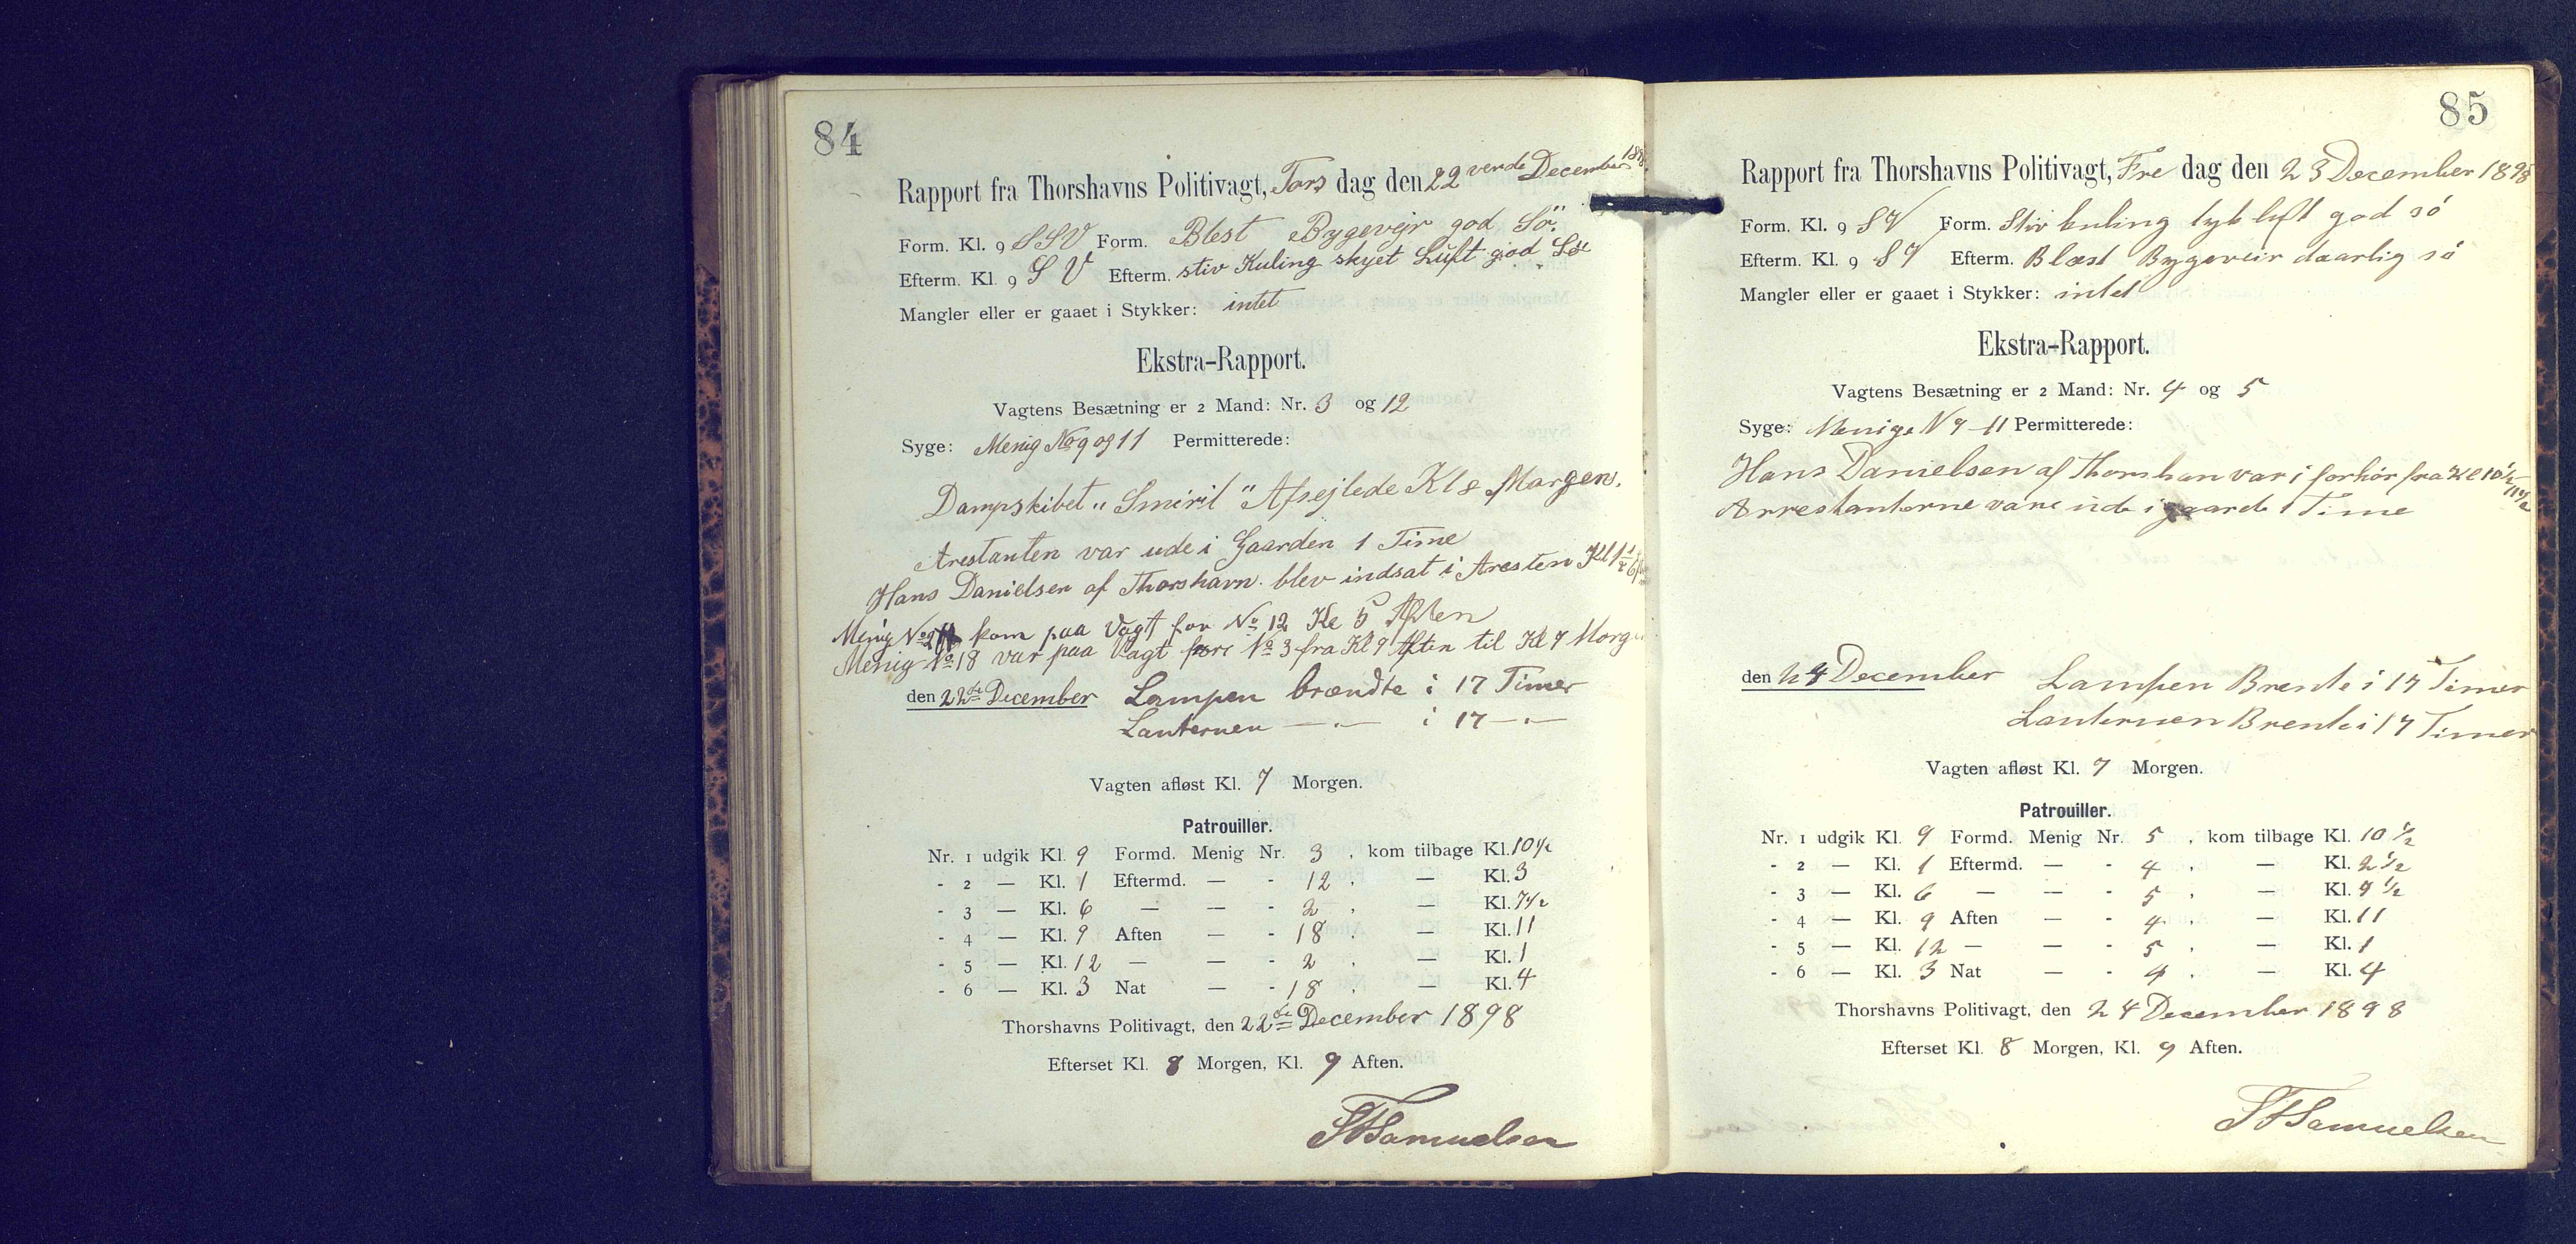 84
Rapport fra Thorshavns Politivagt, Tors dag den 22 vende December 1898.
Form. Kl. 9 SSV Form. Blest Bygevejr god Sö.
Efterm. Kl. 9 S V Efterm. stiv Kuling skyet Luft god Sö
Mangler eller er gaaet i Stykker: intet
Ekstra-Rapport.
Vagtens Besætning er 2 Mand: Nr. 3 og 12
Syge: Menig No 9 og 11 Permitterede:
Dampskibet „Smiril" Afsejlede Kl 8 Morgen.
Arestanten var ude i Gaarden 1 Time
Hans Danielsen af Thorshavn. blev indsat i Aresten Kl 1½
Menig No 2 kom paa Vagt for No 12 Kl 5 Aften
Menig No 18 var paa Vagt fore No 3 fra Kl 9 Aften til Kl 7 Morg
den 22de December Lampen brændte i 17 Timer
Lanternen —„— i 17 —„—
Vagten afløst Kl. 7 Morgen.
Patrouiller.
Nr. 1 udgik Kl. 9 Formd. Menig Nr. 3, kom tilbage Kl. 10½
- 2 — Kl. 1 Eftermd. — - 12, — Kl. 3
- 3 — Kl. 6 — — - 2, — Kl. 7½
- 4 — Kl. 9 Aften — - 18, — Kl. 11
- 5 — Kl. 12 — — - 2, — Kl. 1
- 6 — Kl. 3 Nat — - 18, — Kl. 4
Thorshavns Politivagt, den 22de December 1898
Efterset Kl. 8 Morgen, Kl. 9 Aften.
Samuelsen
85
Rapport fra Thorshavns Politivagt, Fre dag den 23 December 1898
Form. Kl. 9 SV Form. Stiv kuling tyk luft god sö
Efterm. Kl. 9 SV Efterm. Blæst Bygeveir daarlig sö
Mangler eller er gaaet i Stykker: intet
Ekstra-Rapport.
Vagtens Besætning er 2 Mand: Nr. 4 og 5
Syge: Menige N 9-11 Permitterede:
Hans Danielsen af Thorshavn var i forhör fra Kl 10½-11½
Arrestanterne vare ude i gaarde 1 Time
den 24 December Lampen Brente i 17 Timer
Lanternen Brente i 17 Timer
Vagten afløst Kl. 7 Morgen.
Patrouiller.
Nr. 1 udgik Kl. 9 Formd. Menig Nr. 5, kom tilbage Kl. 10½
- 2 — Kl. 1 Eftermd. — - 4, — Kl. 2½
- 3 — Kl. 6 — — - 5, — Kl. 7½
- 4 — Kl. 9 Aften — - 4, — Kl. 11
- 5 — Kl. 12 — — - 5, — Kl. 1
- 6 — Kl. 3 Nat — - 4, — Kl. 4
Thorshavns Politivagt, den 24 December 1898
Efterset Kl. 8 Morgen, Kl. 9 Aften.
Samuelsen